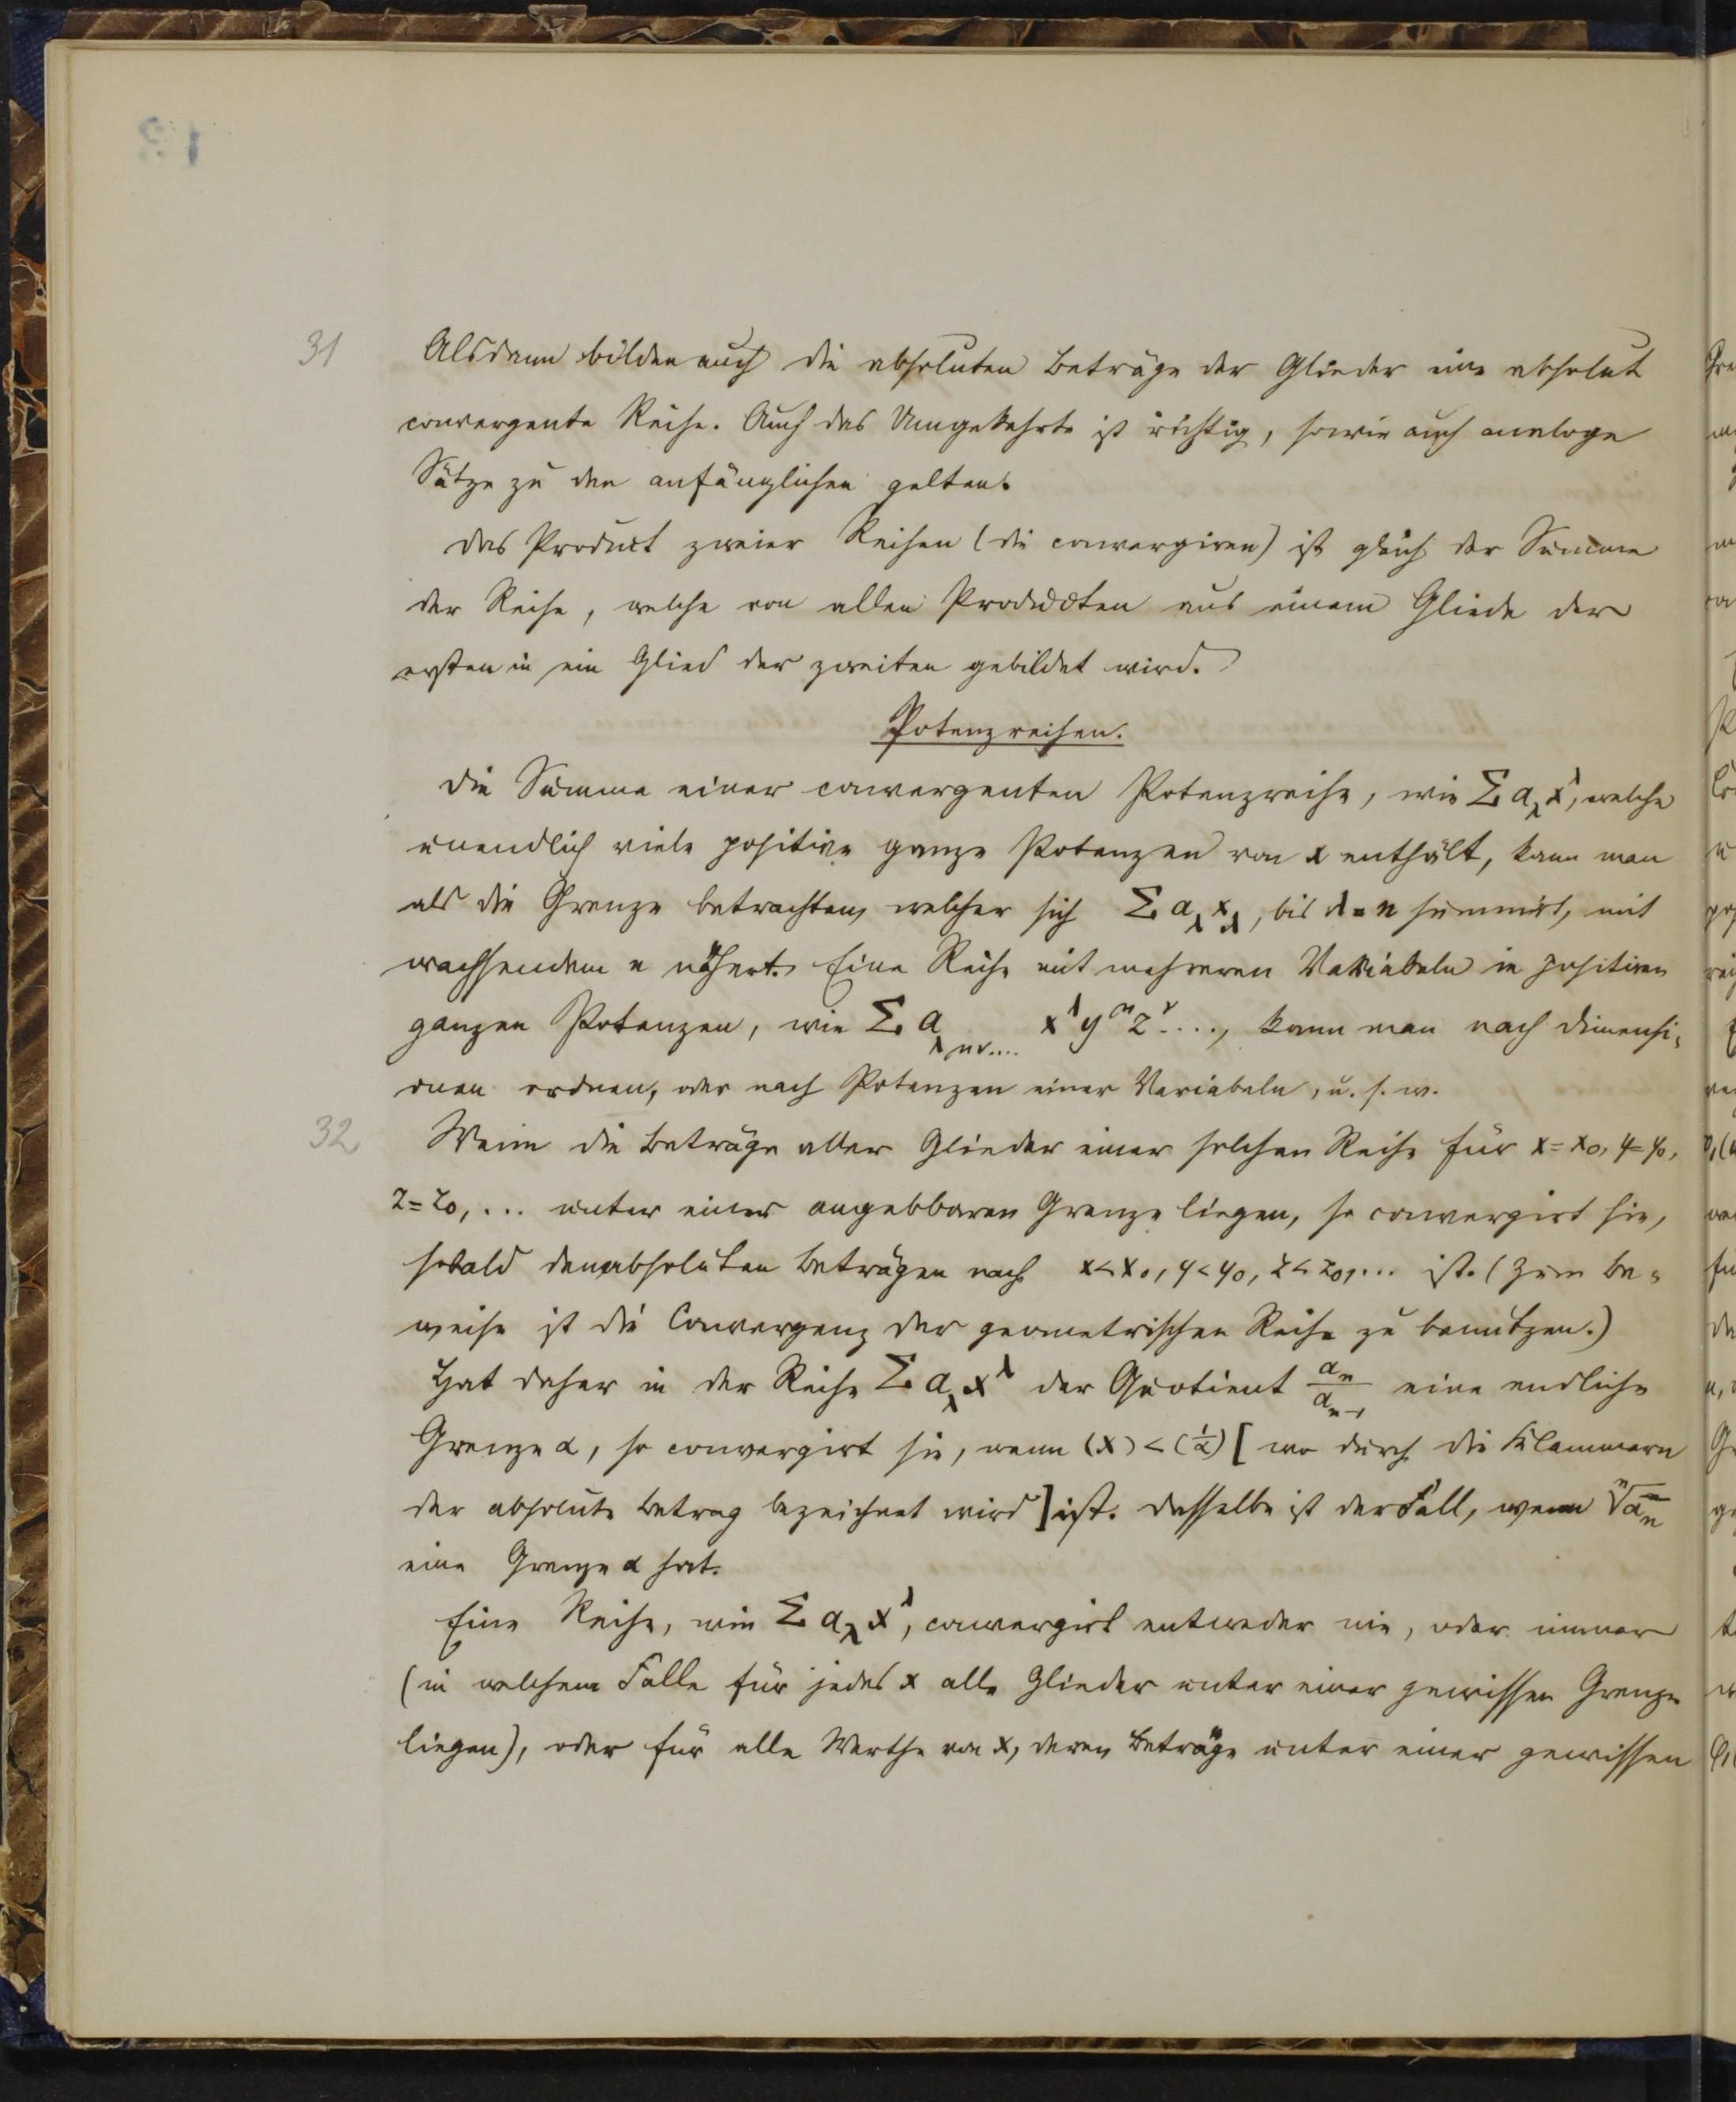 31 Alsdann bilden auch die absoluten Beträge der Glieder eine absolut
convergente Reihe. Auch das Umgekehrte ist richtig, sowie auch analoge
Sätze zu den anfänglichen gelten.
Das Product zweier Reihen (die convergiren) ist gleich der Summe
der Reihe, welche von allen Producten aus einem Gliede der
ersten in ein Glied der zweiten gebildet wird.
Potenzreihen.
Die Summe einer convergenten Potenzreihe, wie Σ a_λ x^λ, welche
unendlich viele positive ganze Potenzen von x enthält, kann man
als die Grenze betrachten, welcher sich Σ a_λ x_λ, bis λ = n summirt, mit
wachsendem n nähert. Eine Reihe mit mehreren Variabeln in positiven
ganzen Potenzen, wie Σ a_λμν.... x^λ y^μ z^ν ...., kann man nach Dimensi-
onen ordnen, oder nach Potenzen einer Variabeln, u. s. w.
32 Wenn die Beträge aller Glieder einer solchen Reihe für x = x₀, y = y₀,
z = z₀, ... unter einer angebbaren Grenze liegen, so convergirt sie,
sobald den absoluten Beträgen nach x < x₀, y < y₀, z < z₀, ... ist. (Zum Be-
weise ist die Convergenz der geometrischen Reihe zu benützen.)
Hat daher in der Reihe Σ a_λ x^λ der Quotient a_n/a_n-1 eine endliche
Grenze α, so convergirt sie, wenn (x) < (1/α) [wo durch die Klammern
der absolute Betrag bezeichnet wird] ist. Dasselbe ist der Fall, wenn ⁿ√a_n
eine Grenze α hat.
Eine Reihe, wie Σ a_λ x^λ, convergirt entweder nie, oder immer
(in welchem Falle für jedes x alle Glieder unter einer gewissen Grenze
liegen), oder für alle Werthe von x, deren Beträge unter einer gewissen